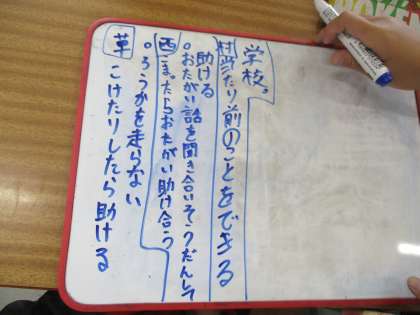 学校。
村当たり前のことをできる
助ける
。おたがい話を聞き合いそうだんして
西こまったらおたがい助け合う
。ろうかを走らない
こけたりしたら助ける